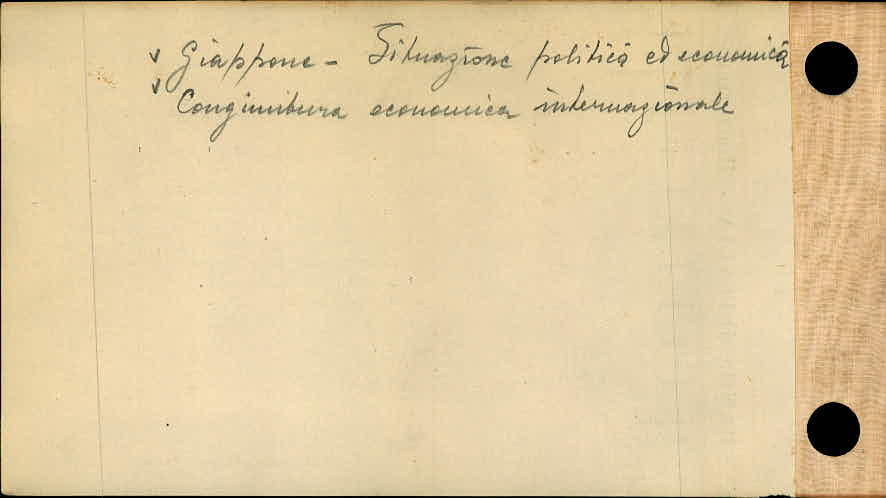 ✓ Giappone - Situazione politica ed economica
✓ Congiuntura economica internazionale